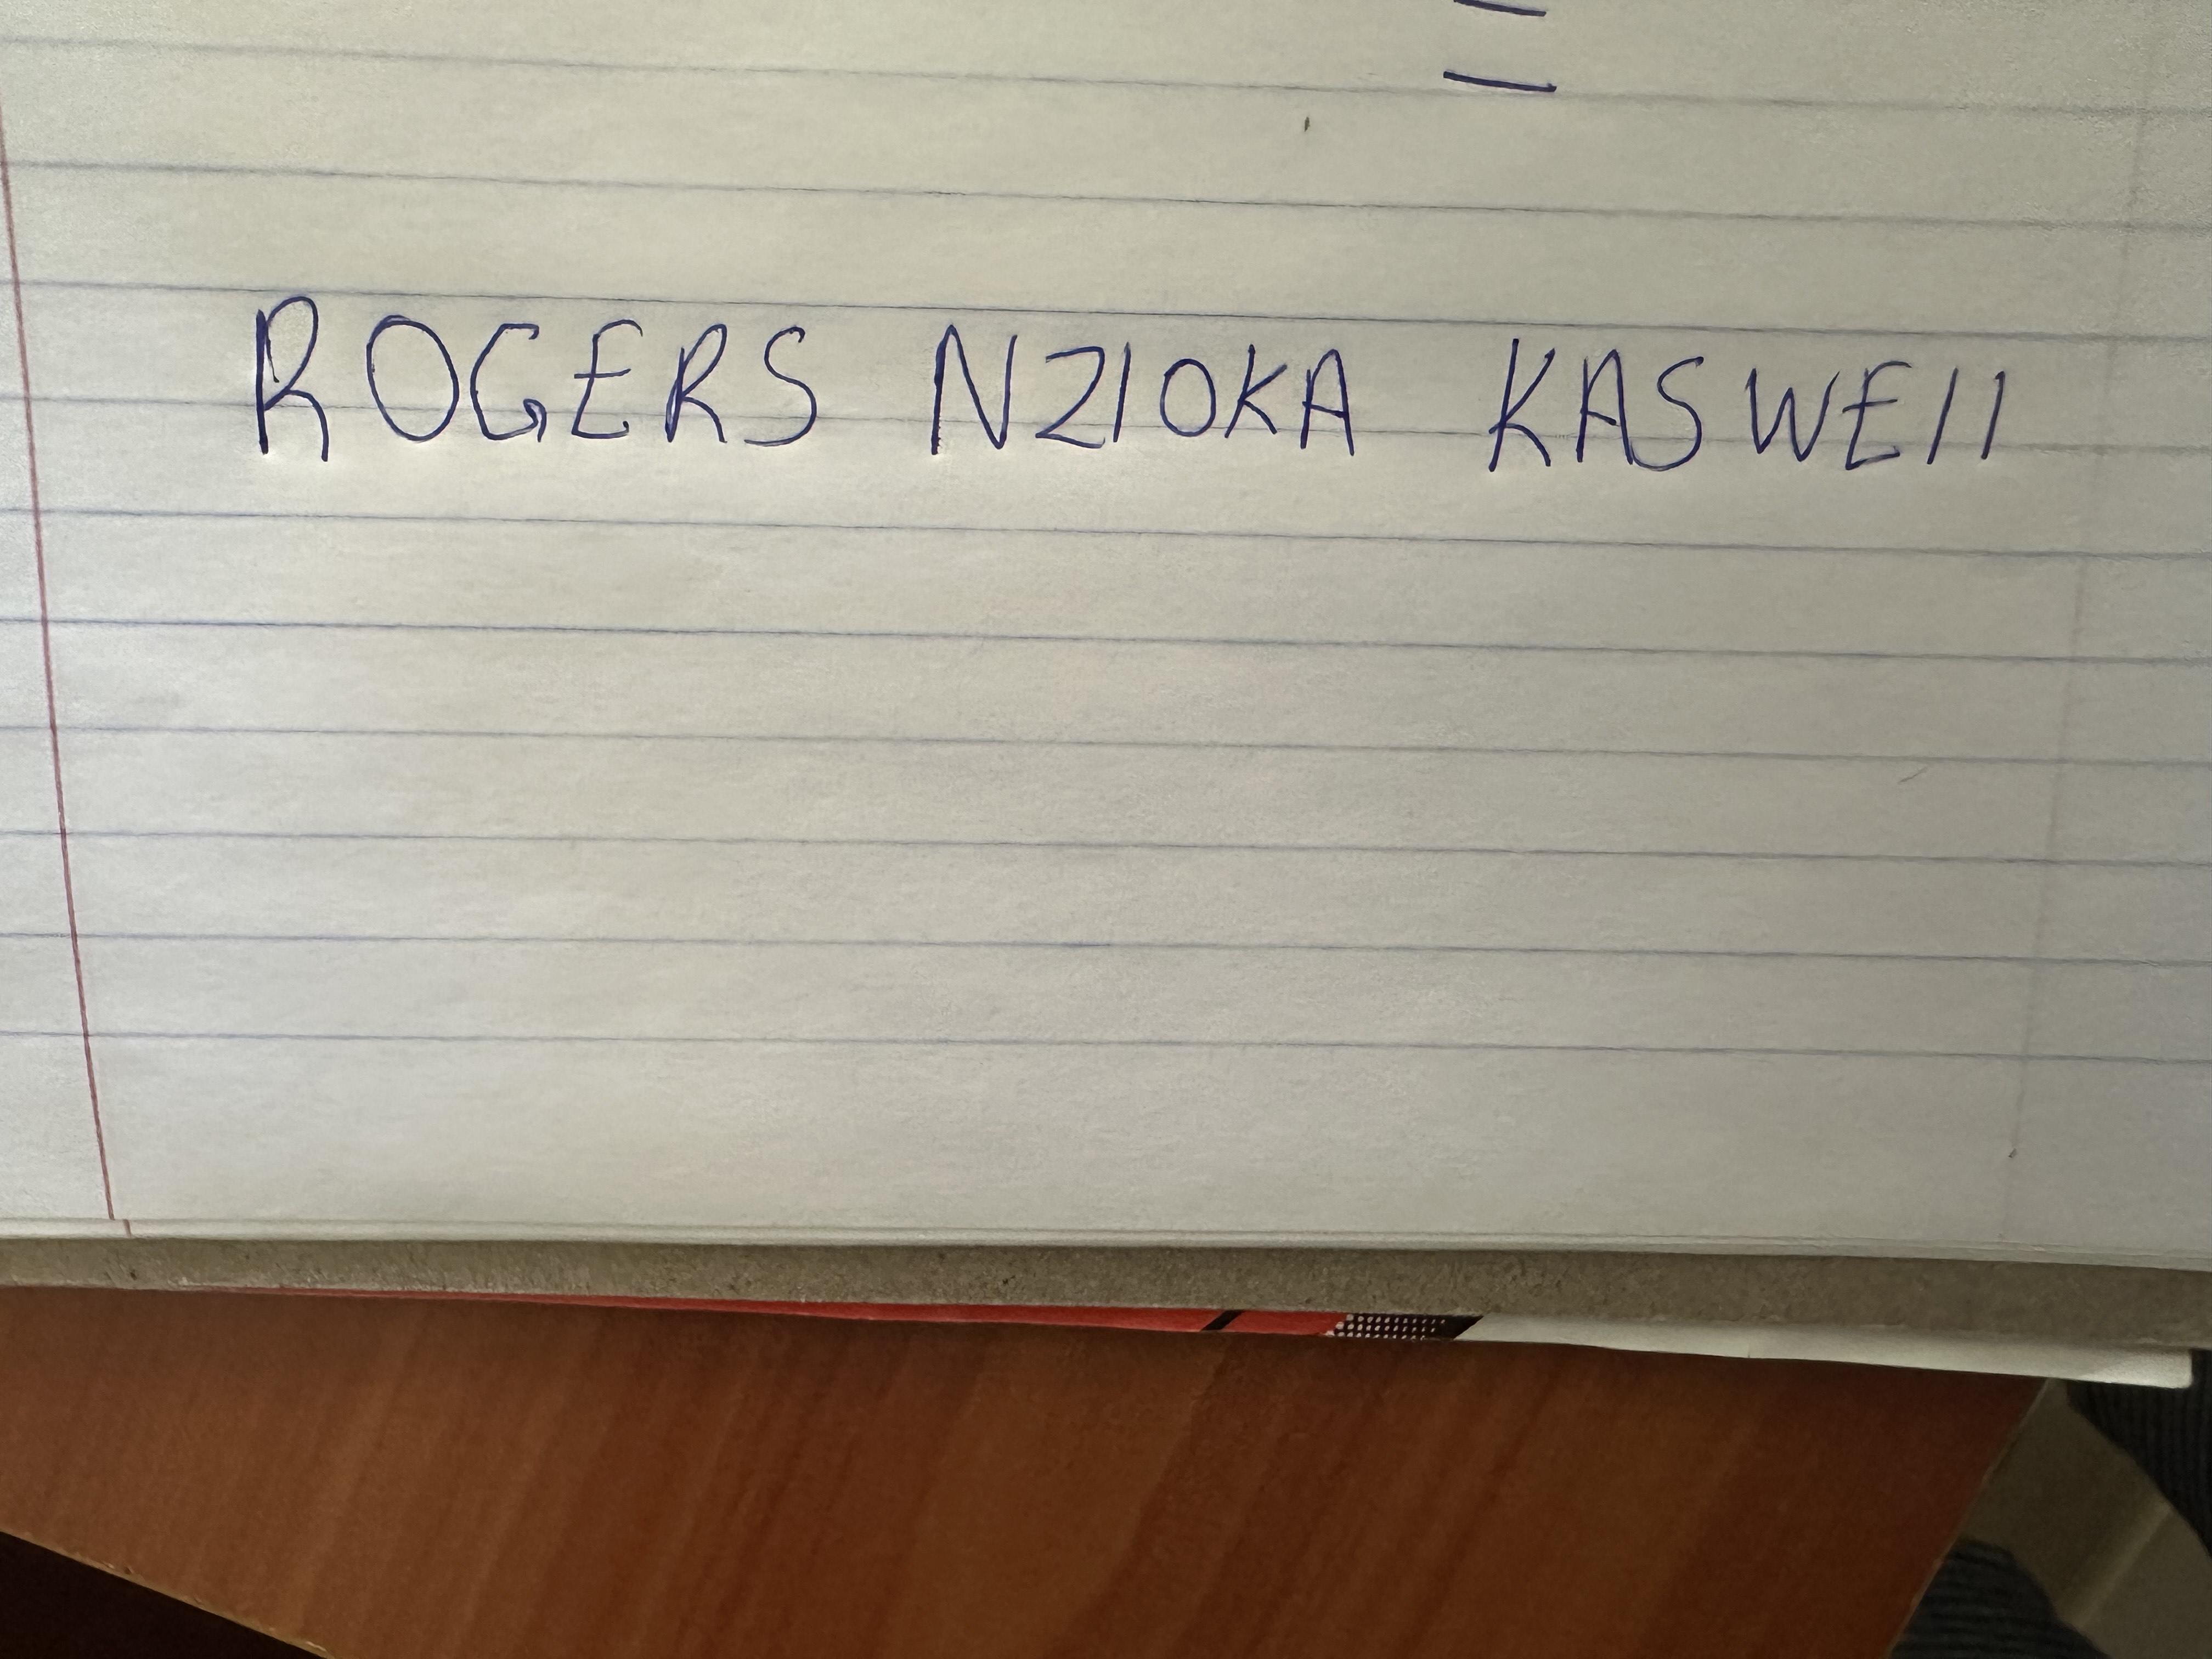 ROGERS NZIOKA KASWEII